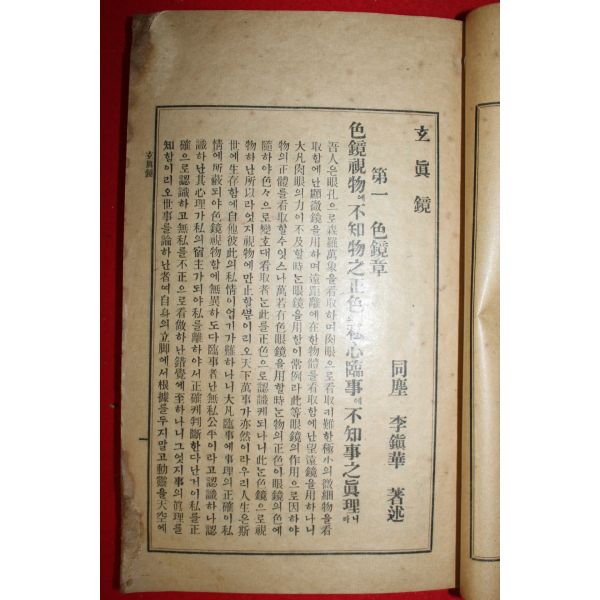 玄眞鏡
同塵 李鎭華 著述
第一 色鏡章
色鏡視物에不知物之正色이오私心臨事에不知事之眞理라니
吾人은眼孔으로森羅萬象을看取하며肉眼으로看取키難한極小의微細物을看
取함에난顯微鏡을用하며遠距離에在한物體를看取함에난望遠鏡을用하나니
大凡肉眼의力이不及할時눈眼鏡을用함이常例라此等眼鏡의作用으로因하야
物의正體를看取할수잇스나萬若有色眼鏡을用할時눈物의正色이眼鏡의色에
隨하야色々으로變호대看取者눈此를正色으로認識케되나니此눈色鏡으로視
物하난所以라엇지視物에만止할뿐이리오天下萬事가亦然이라우리人生은斯
世에生存함에自他彼此의私情이업기가難하나니大凡臨事에事理의正確이私
情에所蔽되야色鏡視物함에無異하도다臨事者난無私公平이라고認識하나認
識하난其心理가私의宿主가되야私를離하야서正確케判斷한다난거이私를正
確으로認識하고無私를不正으로看做하난錯覺에至하나니그엇지事의眞理를
知함이리오世事를論하난者여自身의立脚에서根據를두지말고動靈을天空에
玄眞鏡
一